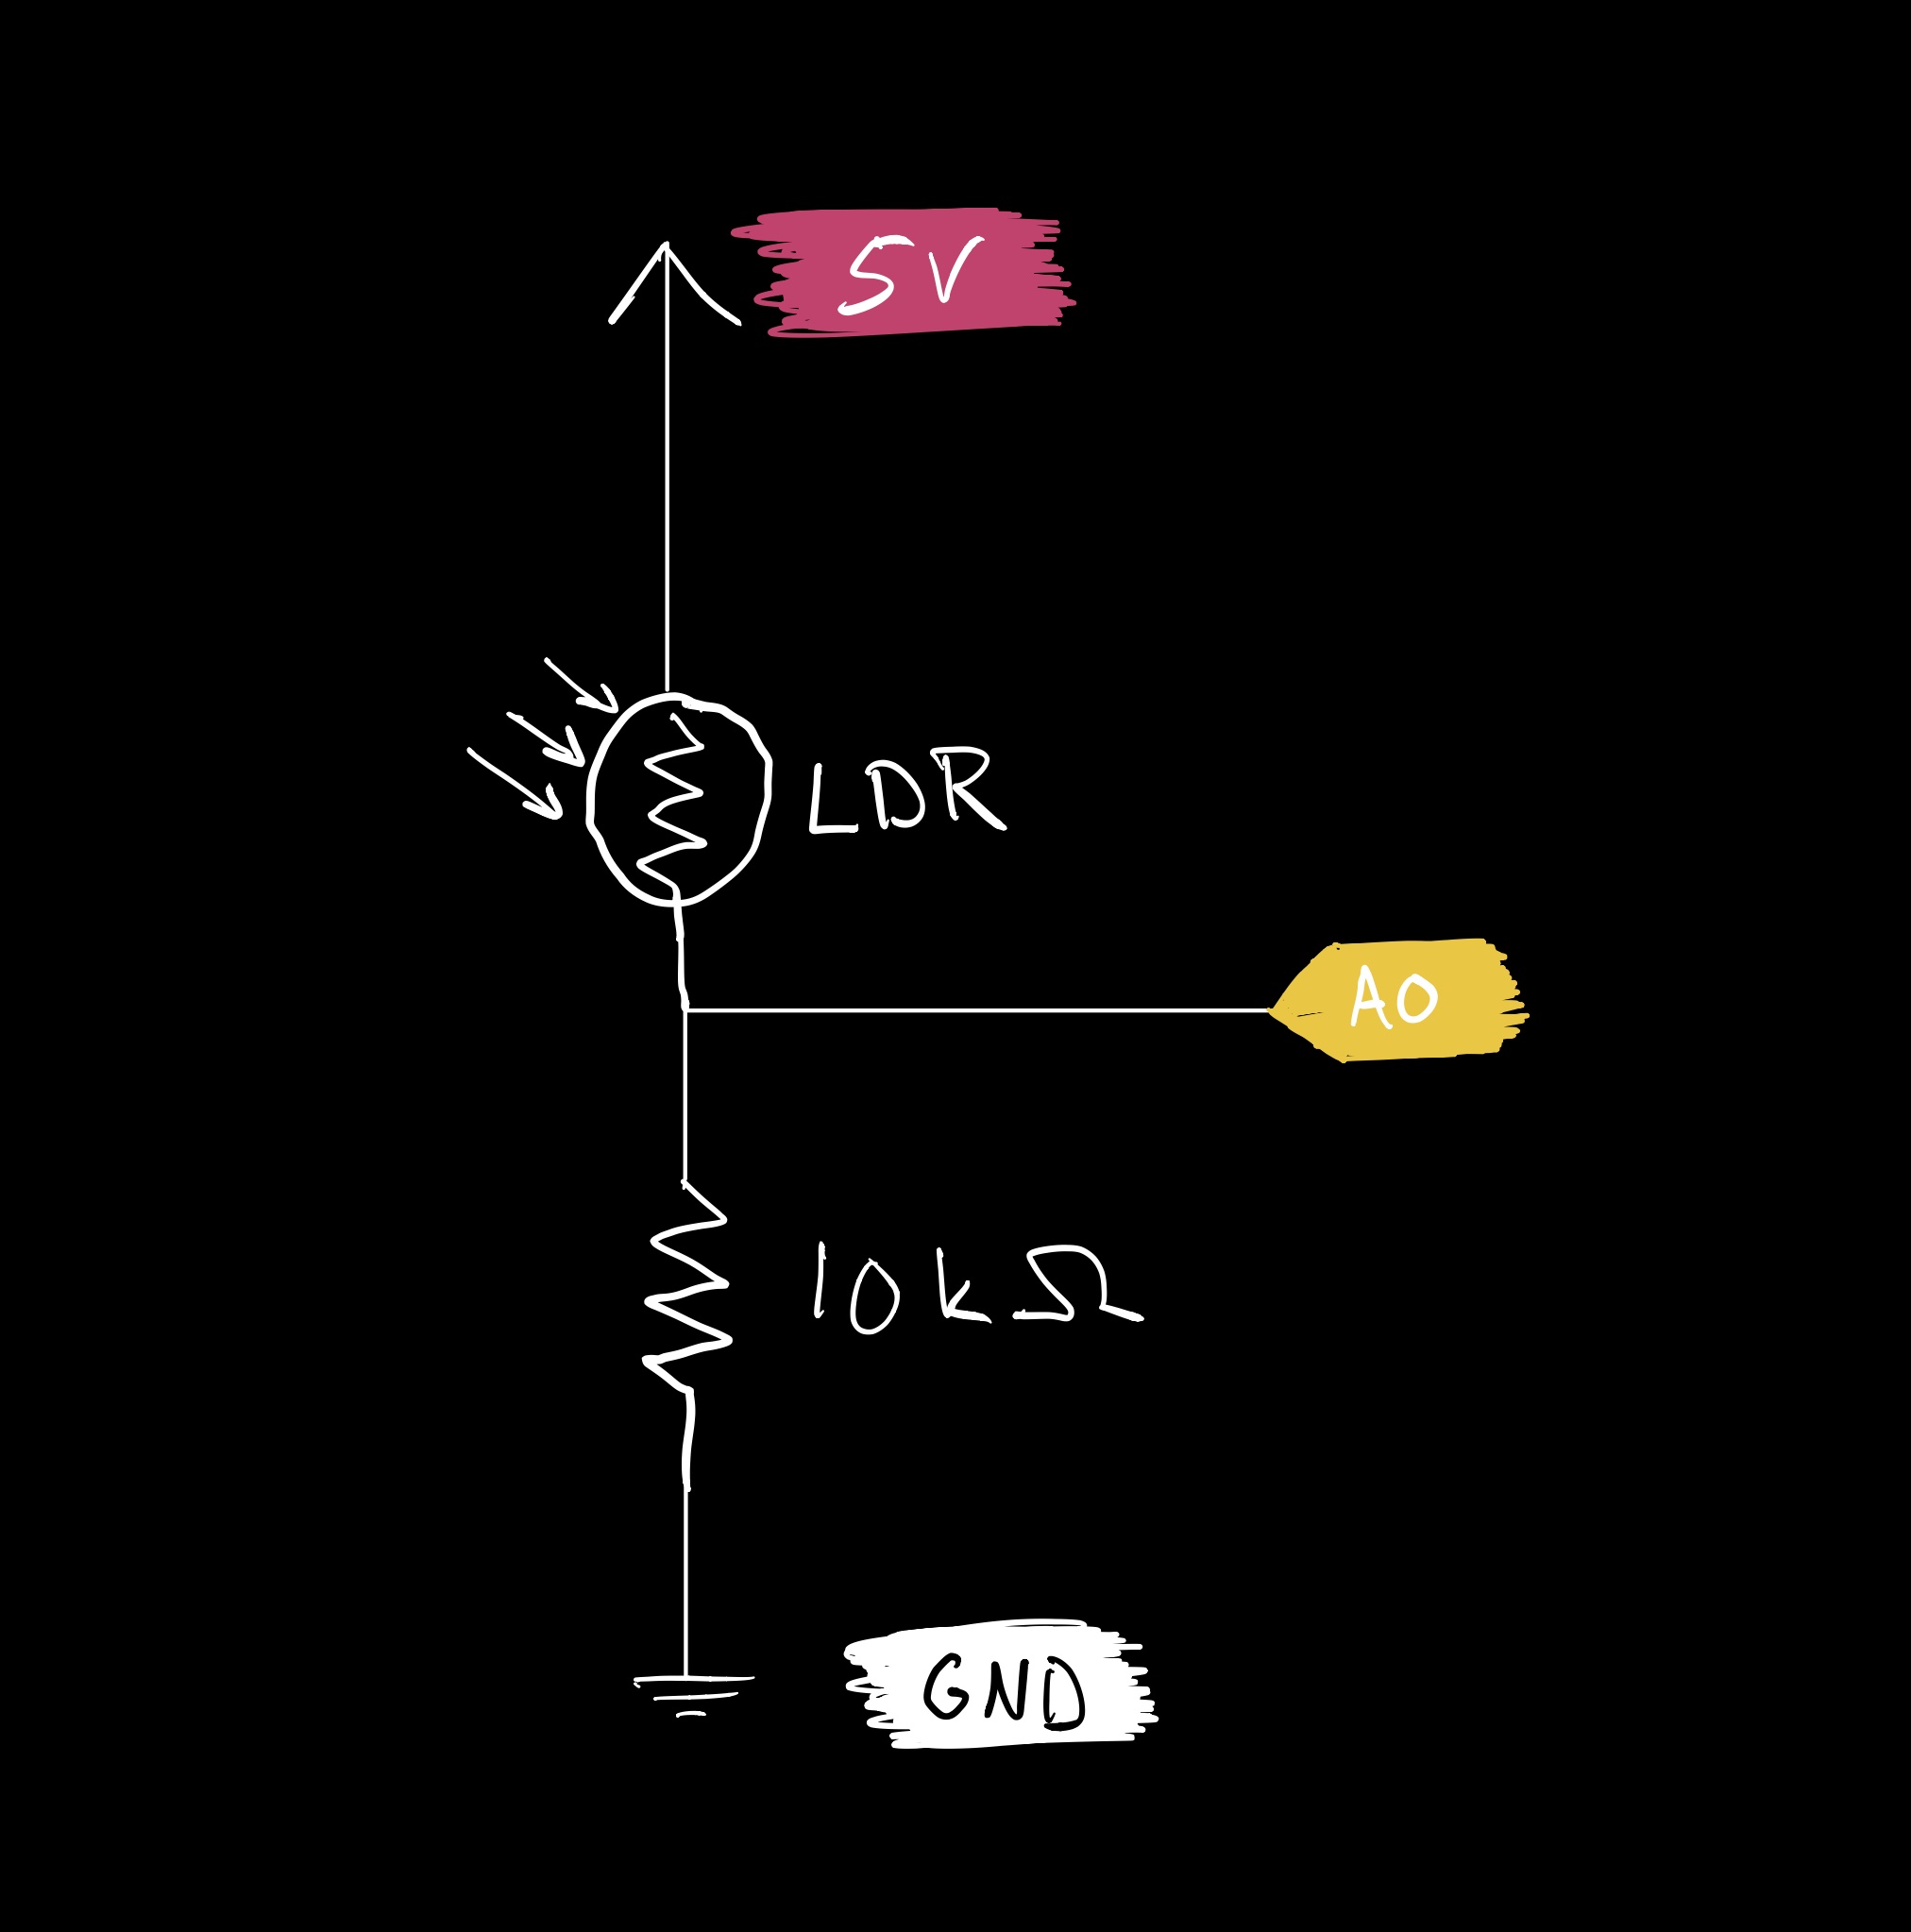 5V
LDR
A0
10kΩ
GND